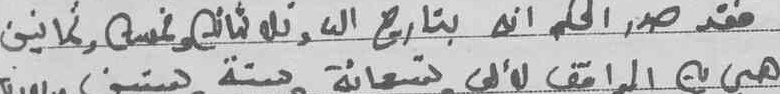 فقد صدر الحكم انه بتاريخ الف وثلاثمائة وخمسة وثمانين
هجرية الموافق لألف وتسعمائة وستة وستين